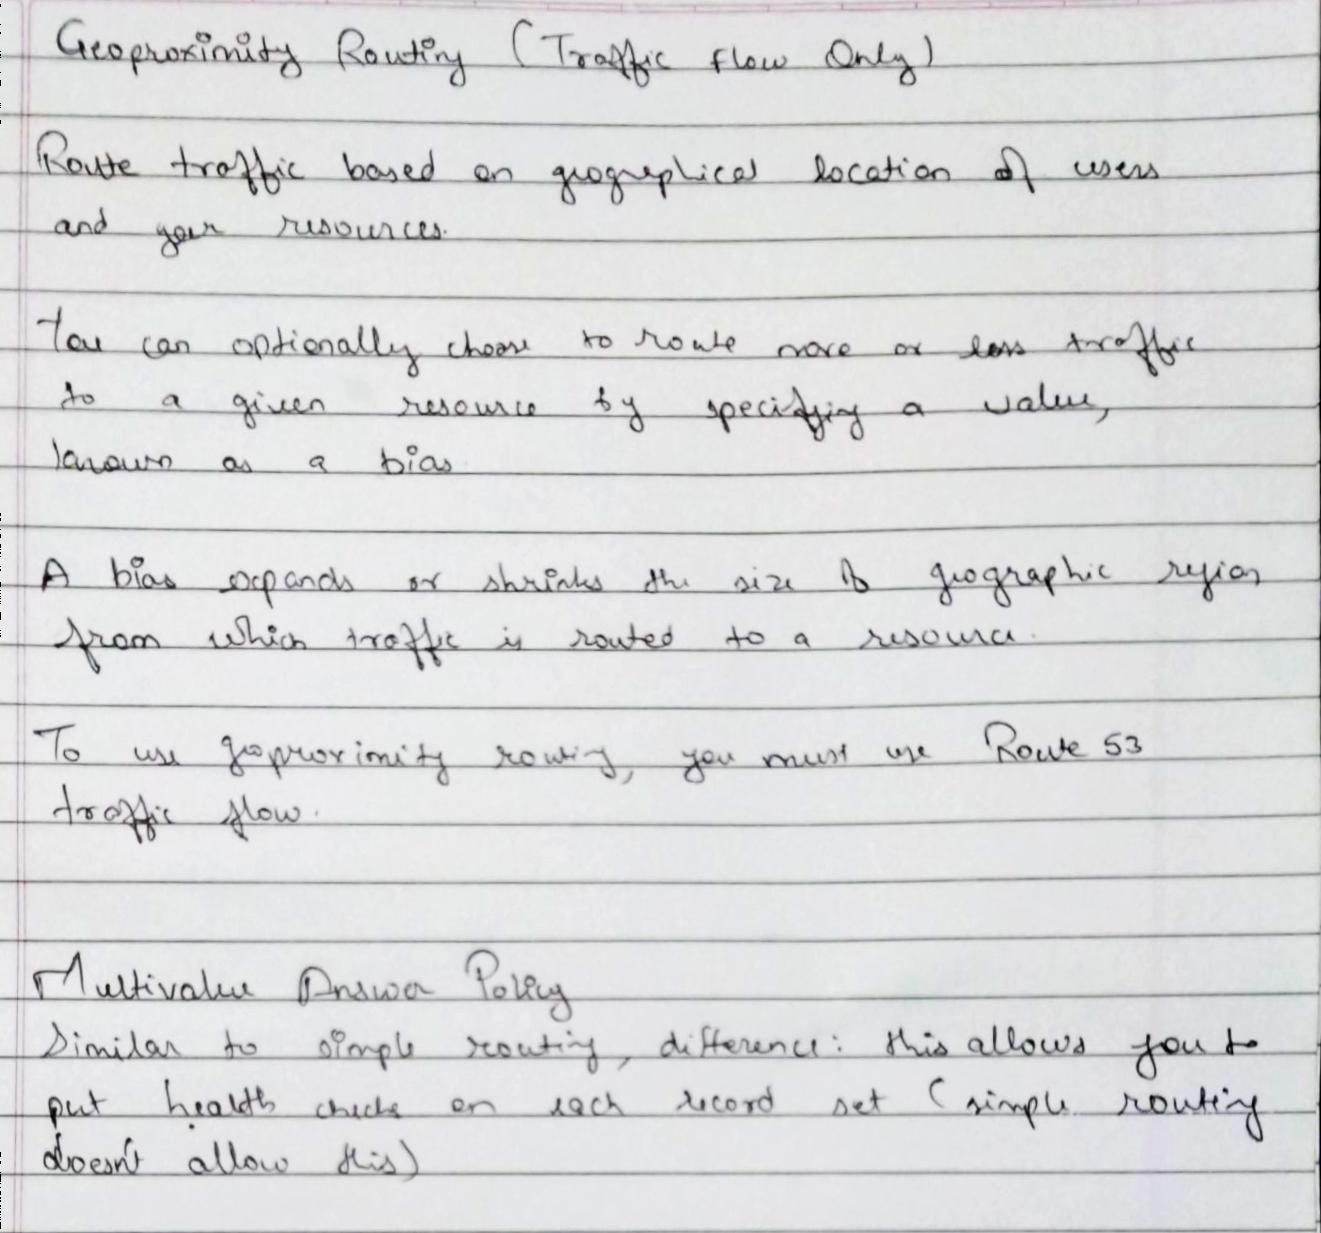 Geoproximity Routing (Traffic Flow Only)
Route traffic based on geographical location of users
and your resources.
You can optionally choose to route more or less traffic
to a given resource by specifying a value,
known as a bias
A bias expands or shrinks the size of geographic region
from which traffic is routed to a resource.
To use geoproximity routing, you must use Route 53
traffic flow.
Multivalue Answer Policy
Similar to simple routing, difference: this allows you to
put health checks on each record set (simple routing
doesn't allow this)